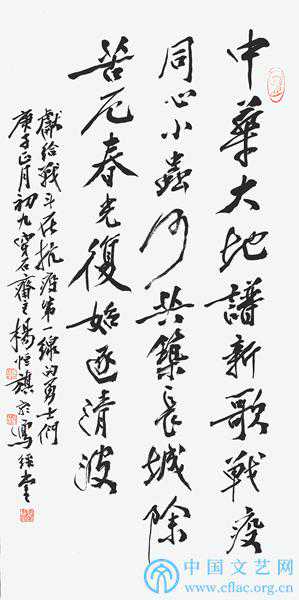 中華大地譜新歌戰疫
同心小蟲何共築長城除
苦厄春光復始逐清波
獻給戰斗在抗疫第一線的勇士們
庚子正月初九 石齋主楊恒旗
中国文艺网
www.cflac.org.cn